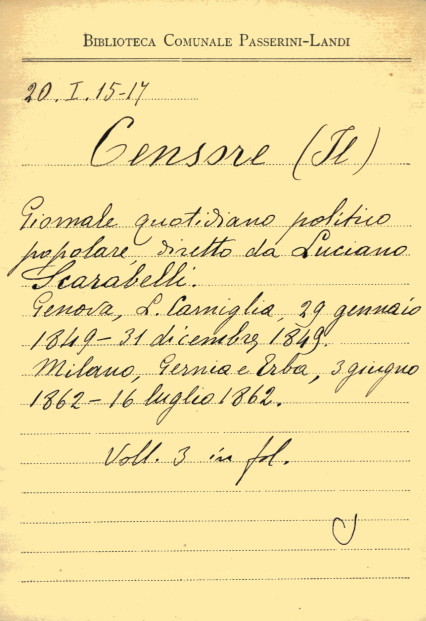 BIBLIOTECA COMUNALE PASSERINI-LANDI
20. I. 15-17
Censore (Il)
Giornale quotidiano politico
popolare, diretto da Luciano
Scarabelli.
Genova, L. Carniglia, 29 gennaio
1849 - 31 dicembre, 1849.
Milano, Gernia e Erba, 3 giugno
1862 - 16 luglio 1862.
Voll. 3 in fol.